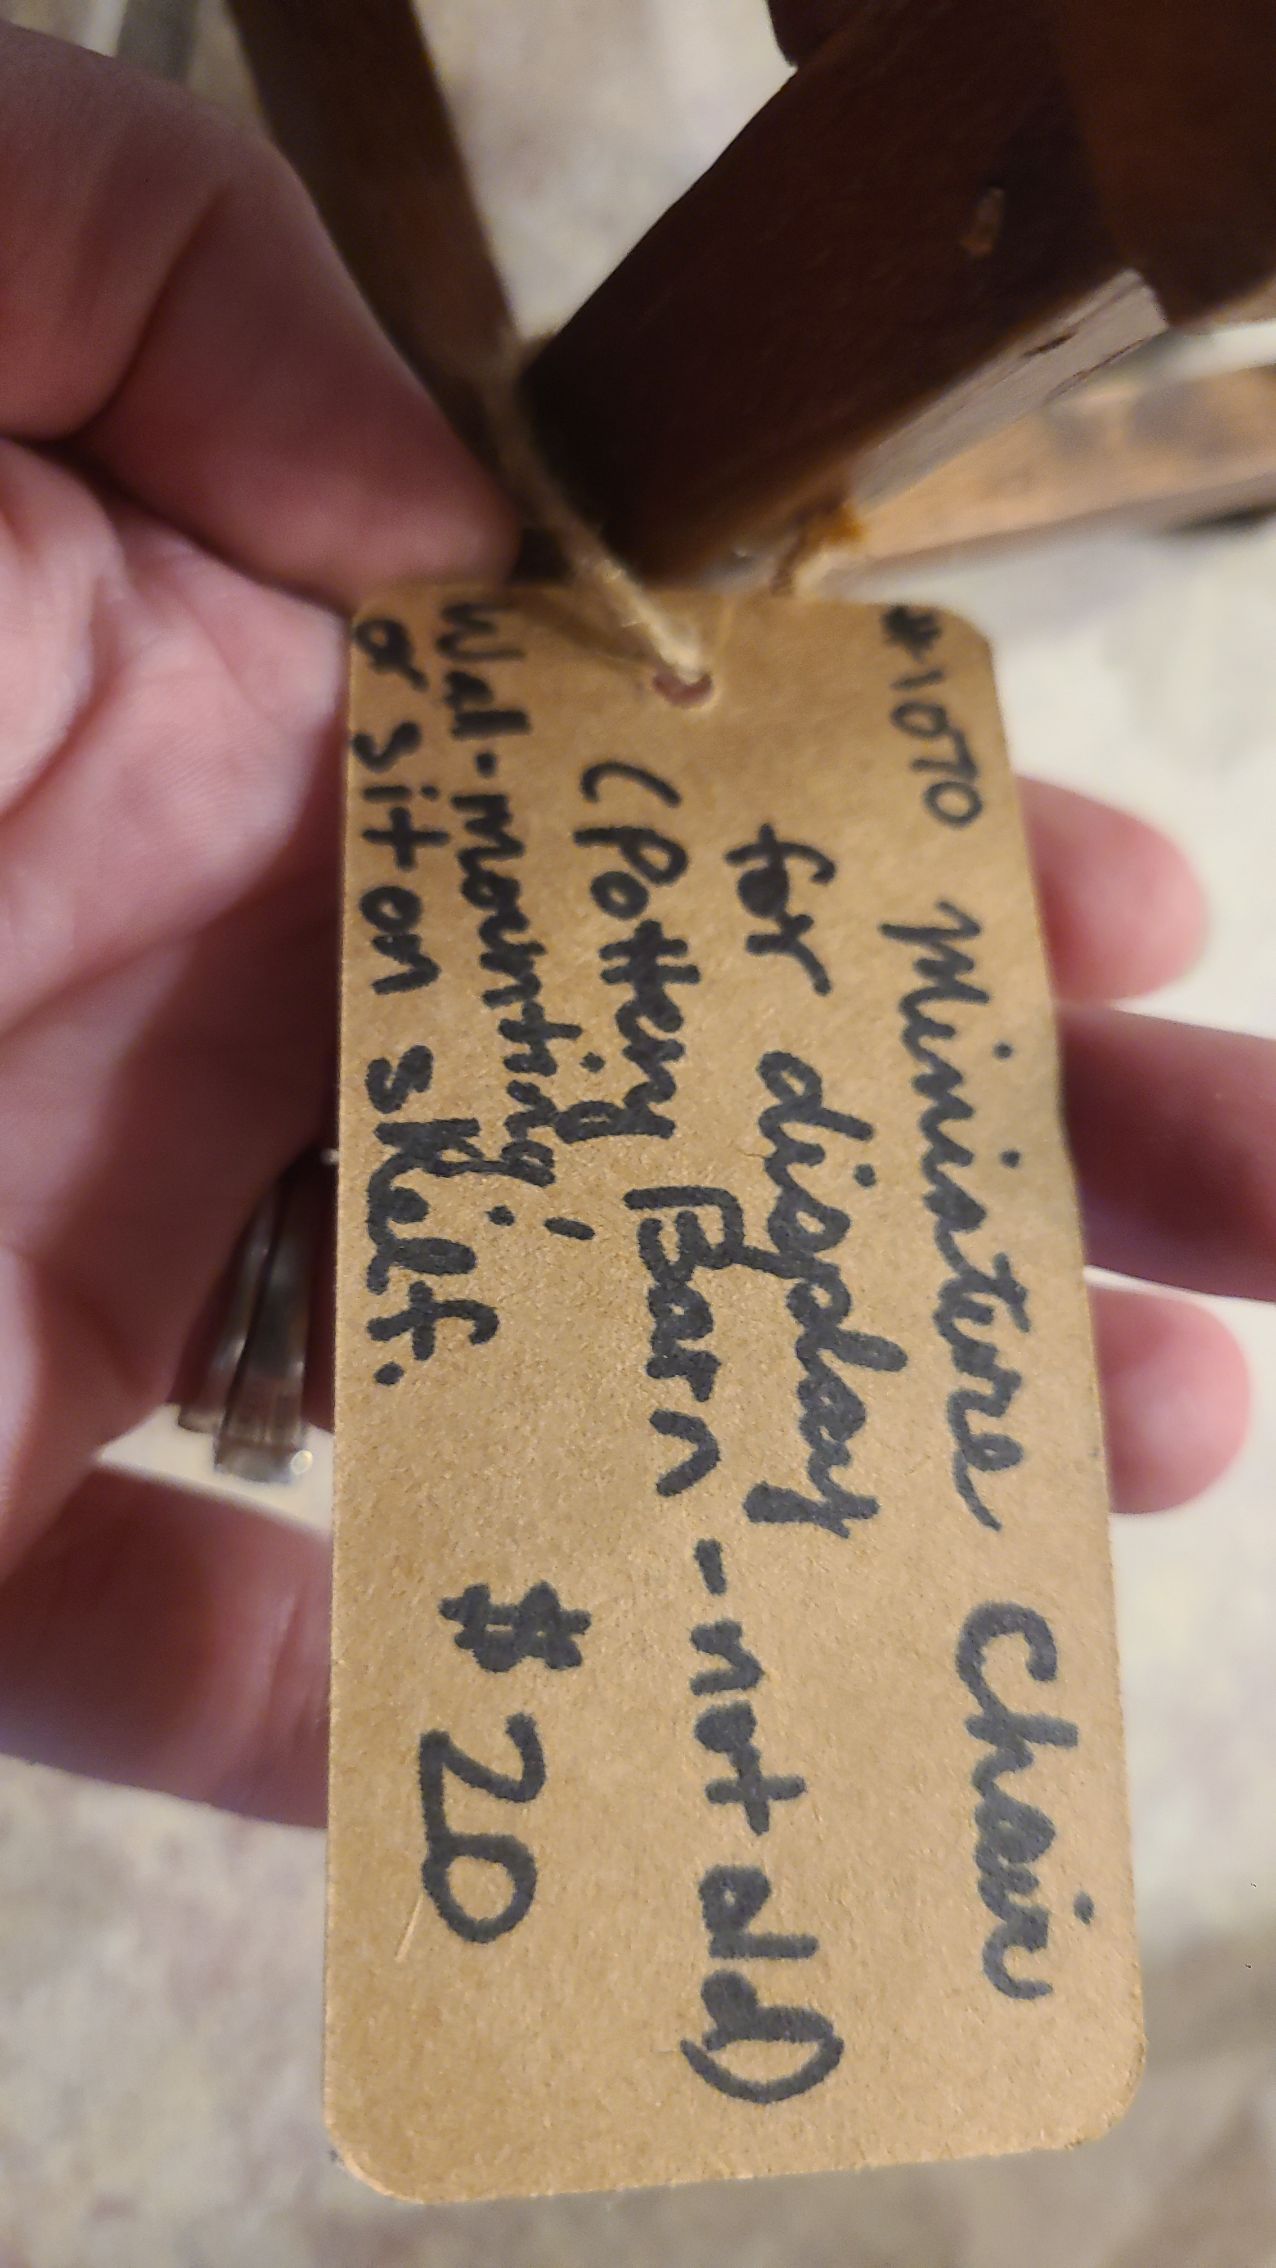 #1070 Miniature Chair
for display
(Pottery Barn - not old)
Wall-mounting;
or sit on shelf.
$20